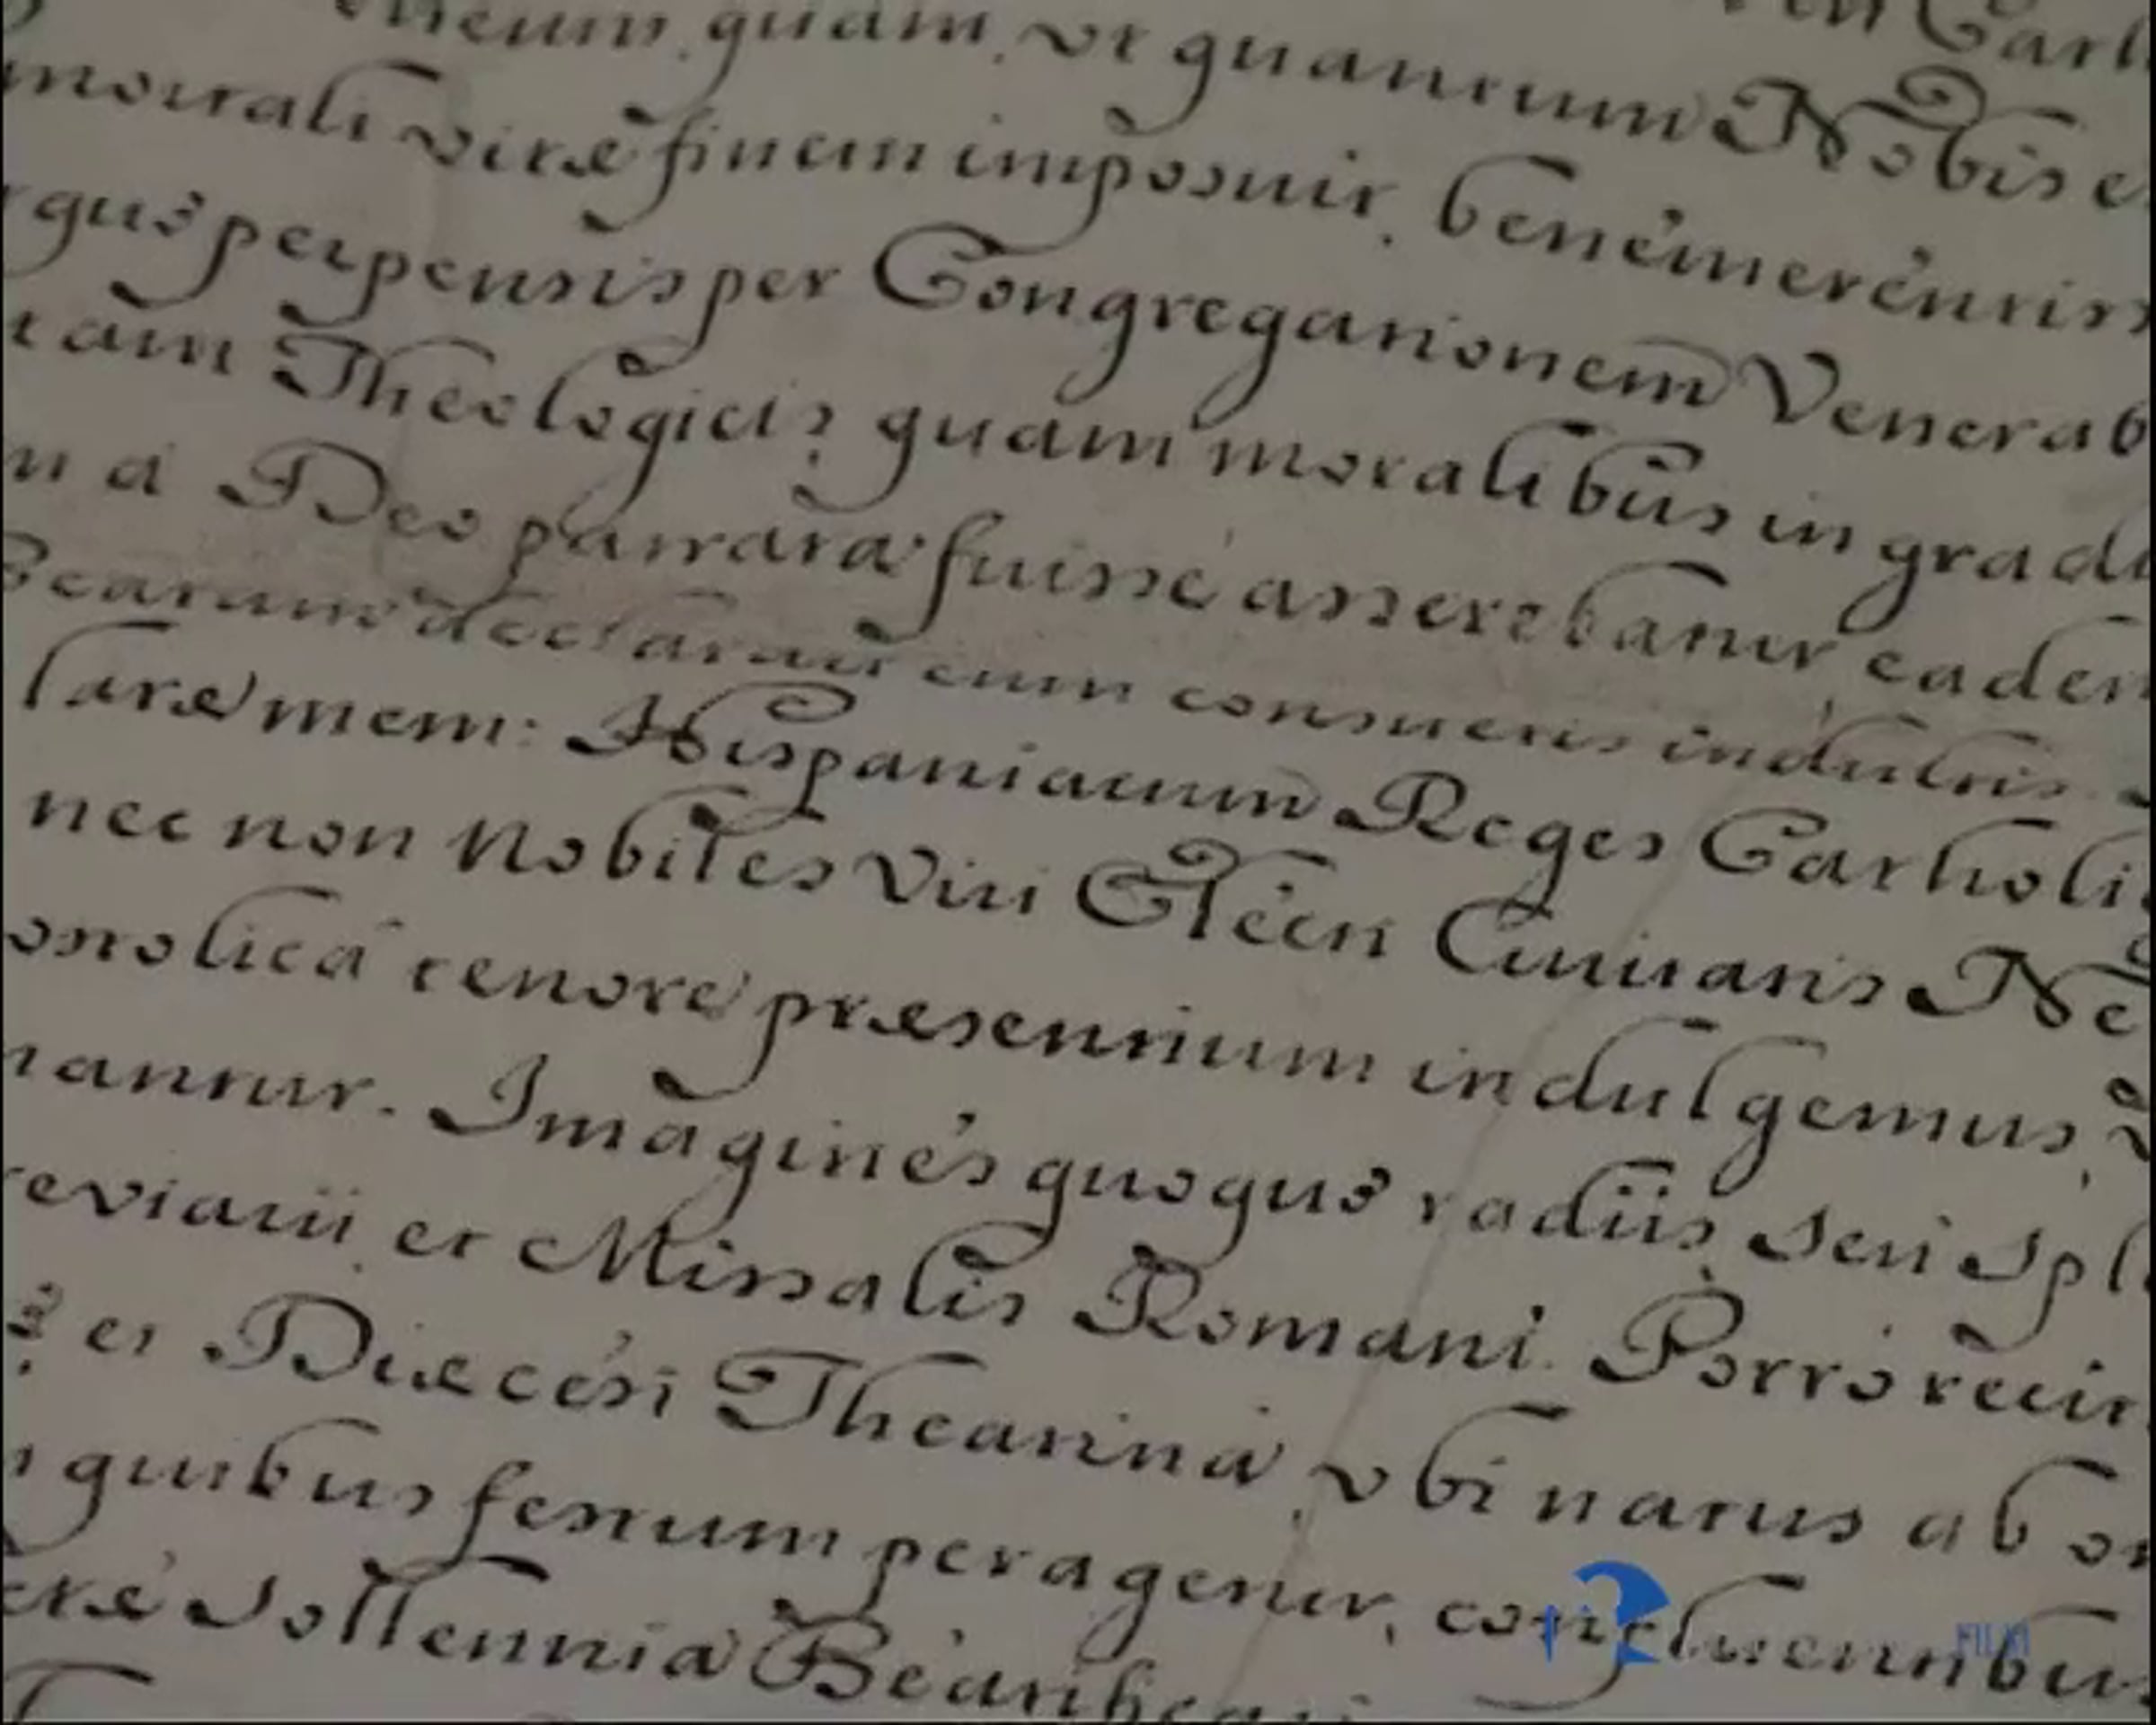 quam, ut quantum Nobis
mortali vitæ finem imposuit, benemerentis
que perpensis per Congregationem Venerab
tam Theologicis, quam moralibus in gradu
a Deo patrata fuisse asserebatur, eadem
Beatum declaravit cum consuetis indultis
claræ mem: Hispaniarum Reges Catholi
nec non Nobiles Viri Electi Civitatis Ne
tenore præsentium indulgemus,
Imagines quoque radiis, seu spl
reviarii et Missalis Romani. Porro recit
et Diæcesi Theatina, ubi natus
quibus festum peragetur, confluentibus
sollennia Beatificati